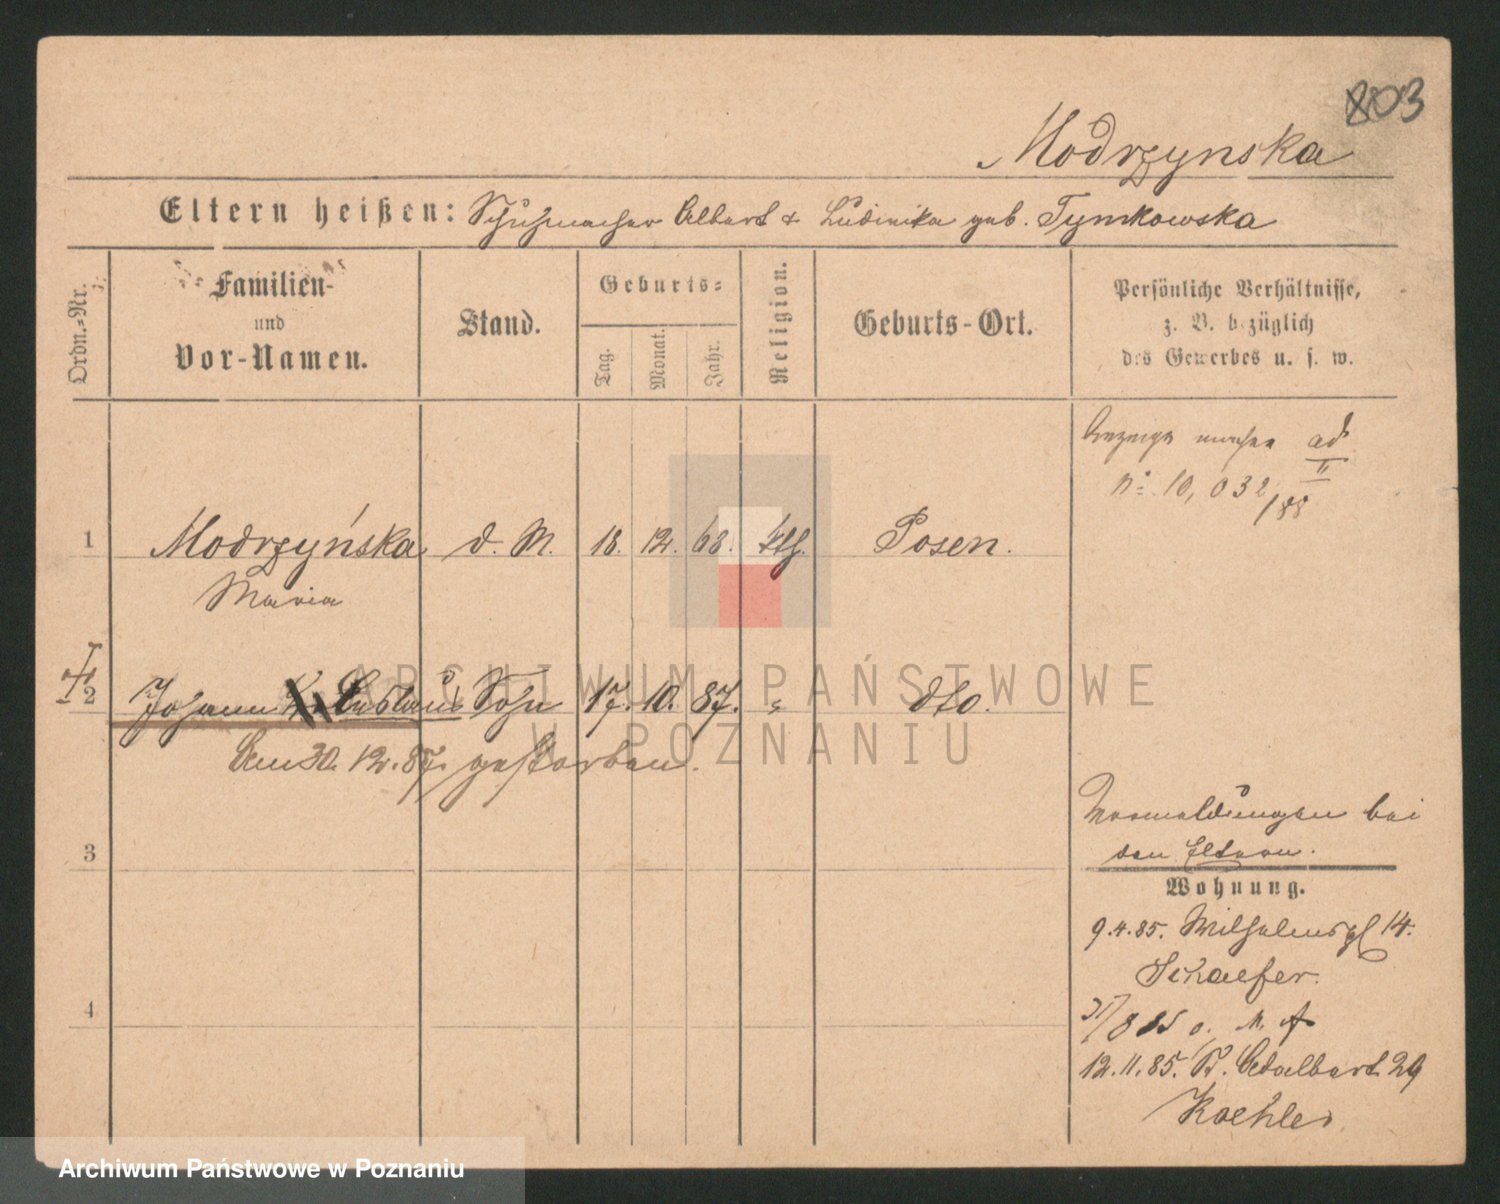 803
Modrzynska
Eltern heißen: Schuhmacher Albert & Ludwika geb. Tymkowska
Ordn.-Nr.
Familien-
und
Vor-Namen.
Stand.
Geburts-
Tag.
Monat.
Jahr.
Religion.
Geburts-Ort.
Persönliche Verhältnisse,
z. B. bezüglich
des Gewerbes u. s. w.
Anzeige machen ad
No 10,032/88
1 Modrzyńska d. M. 18. 12. 63. kth. Posen.
Maria
2 Johann Ladislaus Sohn 17. 10. 87. " dto.
Am 30. 12. 87. gestorben.
3
4
Anmeldungen bei
den Eltern.
Wohnung.
9.4.85. Wilhelmspl 14.
Schaefer.
31/8 85
12.11.85. St. Adalbert 29
Koehler
ARCHIWUM PAŃSTWOWE
W POZNANIU
Archiwum Państwowe w Poznaniu